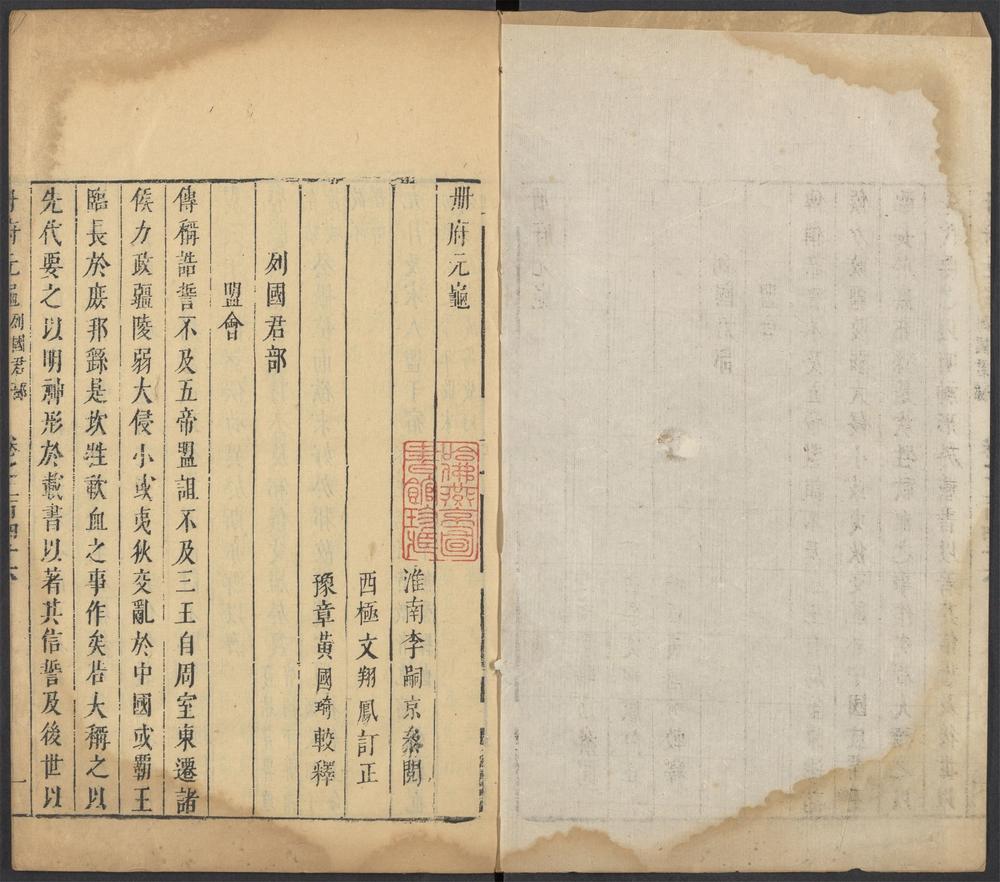 冊府元龜
淮南李嗣京參閱
西極文翔鳳訂正
豫章黃國琦較釋
列國君部
盟會
傳稱誥誓不及五帝盟詛不及三王自周室東遷諸
侯力政疆陵弱大侵小或夷狄交亂於中國或霸王
臨長於庶邦繇是坎牲歃血之事作矣若大稱之以
先代要之以明神形於載書以著其信誓及後世以
冊府元龜 列國君部 卷之二百四十六 一
哈佛燕京圖
書館珍藏